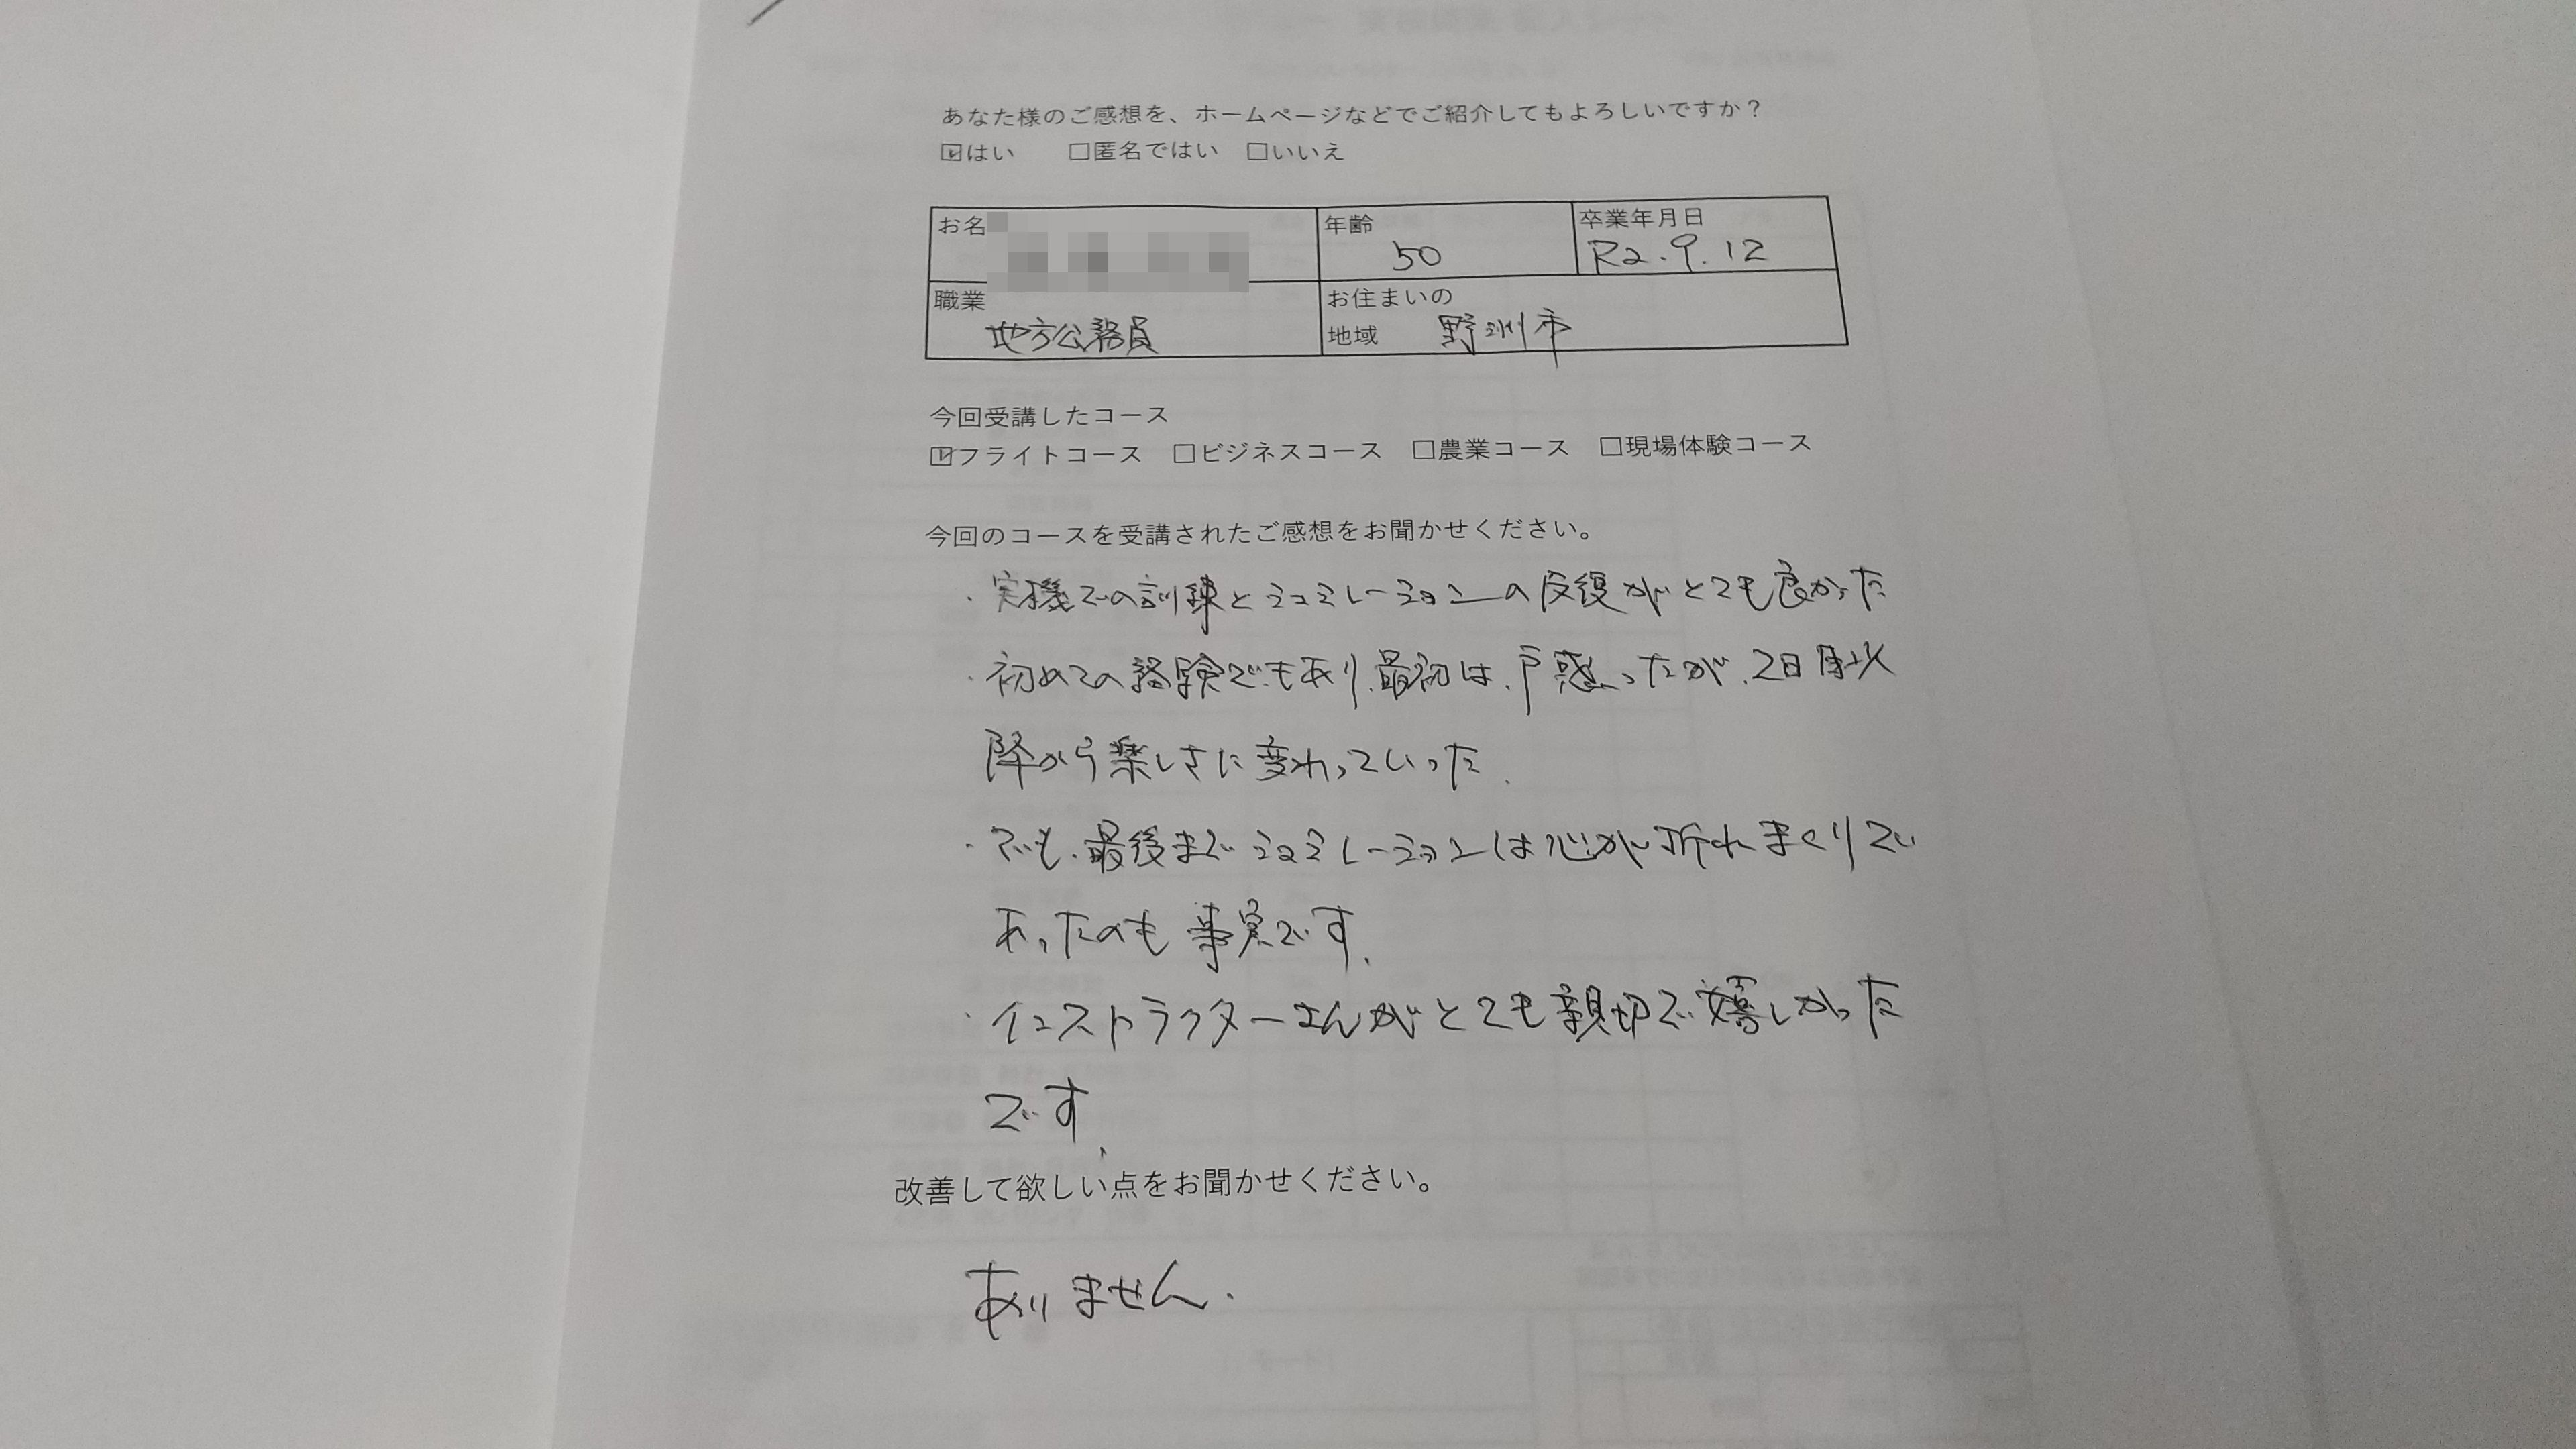 あなた様のご感想を、ホームページなどでご紹介してもよろしいですか？
☑はい　□匿名ではい　□いいえ
お名
年齢
50
卒業年月日
R2.9.12
職業
地方公務員
お住まいの
地域　野洲市
今回受講したコース
☑フライトコース　□ビジネスコース　□農業コース　□現場体験コース
今回のコースを受講されたご感想をお聞かせください。
・実機での訓練とシュミレーションの反復がとても良かった
・初めての経験でもあり、最初は、戸惑ったが、2日目以
降から楽しさに変わっていった.
・でも、最後までシュミレーションは心が折れまくりで
あったのも事実です.
・インストラクターさんがとても親切で嬉しかった
です.
改善して欲しい点をお聞かせください。
ありません.